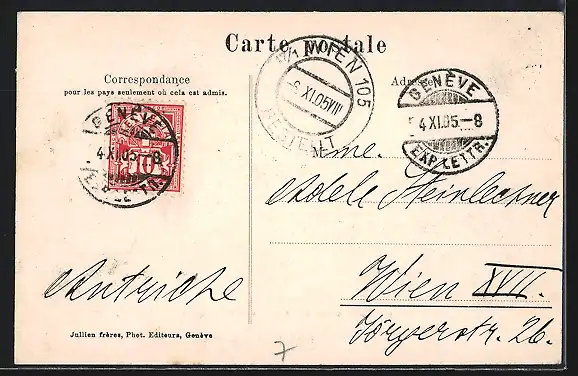 Carte Postale
Correspondance
pour les pays seulement où cela est admis.
Adresse
GENÈVE
4 XI. 05. — 8
EXP. LETTR.
WIEN 105
6 XI. 05 VIII
BESTELLT
GENÈVE
4 XI. 05. — 8
EXP. LETTR.
10
Mme.
Adele Steinlechner
Autriche
Wien XVII.
Jörgerstr. 26.
Jullien frères, Phot. Editeurs, Genève
7